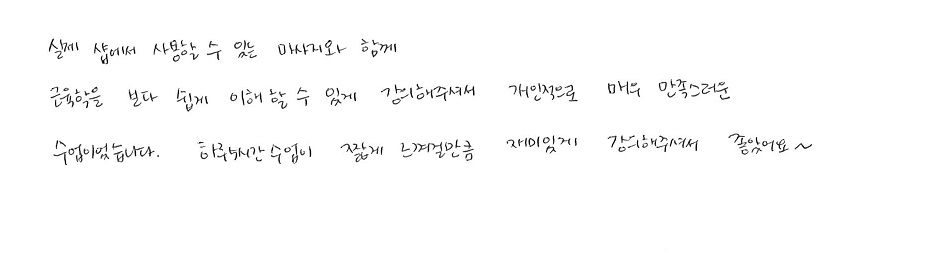 실제 샵에서 사용할 수 있는 마사지와 함께
근육학을 보다 쉽게 이해할 수 있게 강의해주셔서 개인적으로 매우 만족스러운
수업이었습니다. 하루 4시간 수업이 짧게 느껴질만큼 재미있게 강의해주셔서 좋았어요~